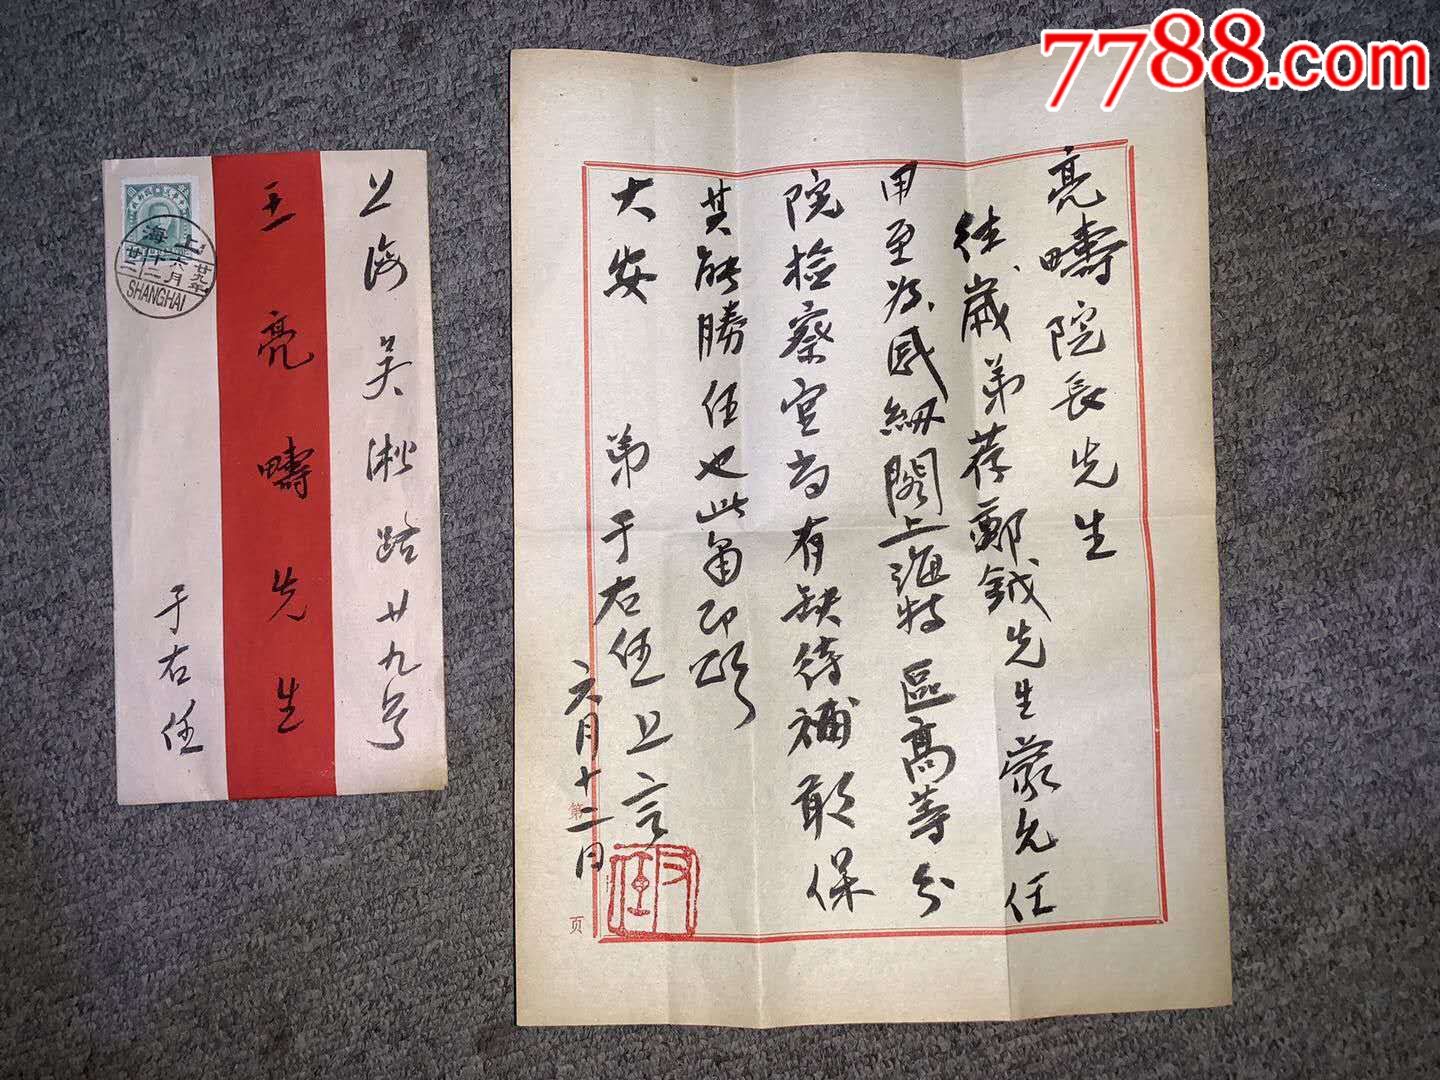 7788.com
亮疇院長先生
往歲弟荐鄭鉞先生蒙允任
用至為感紉閣上海特區高等分
院檢察官尚有缺待補敢保
其能勝任也此留即頌
大安 弟于右任上言
六月十二日
第
页
右任
上海吴淞路廿九号
王亮疇先生
于右任
上海
廿九年
六月
十二
SHANGHAI